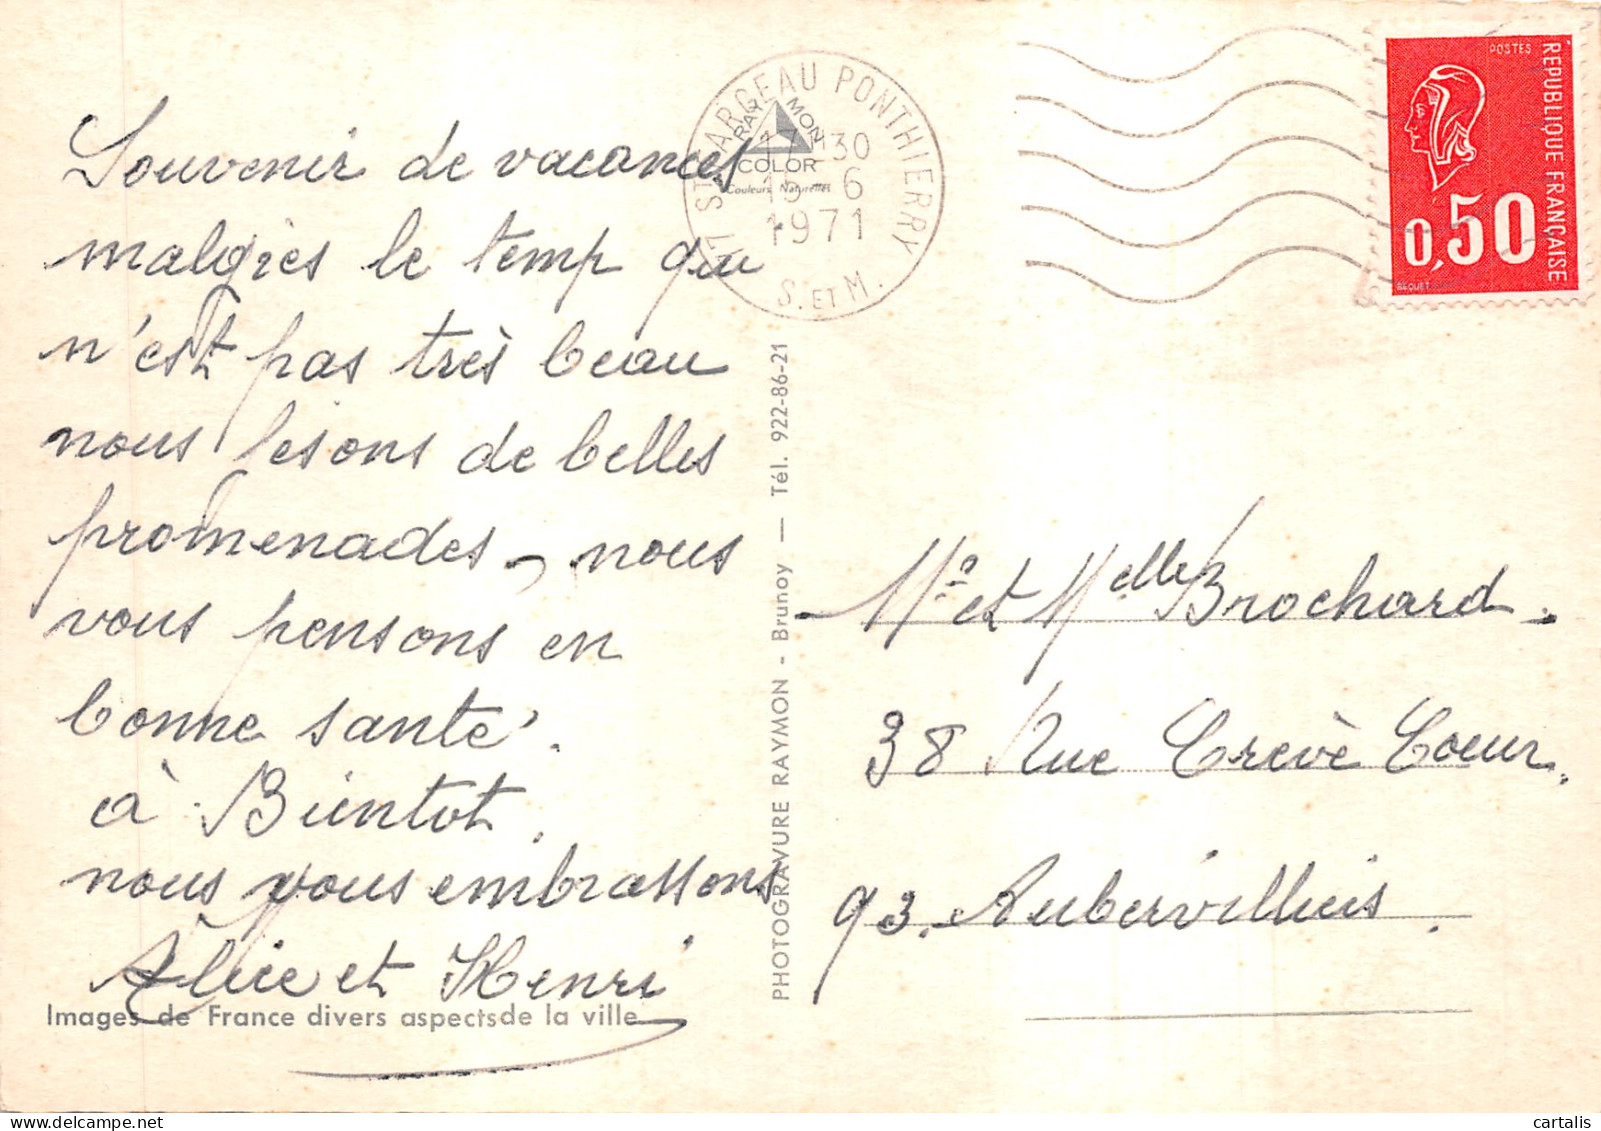 Souvenir de vacances
malgrès le temp qui
n'est pas très beau
nous fesons de belles
promenades, nous
vous pensons en
bonne santé.
à Bientot.
nous vous embrassons
Alice et Henri
Images de France divers aspects de la ville
PHOTOGRAVURE RAYMON - Brunoy — Tél. 922-86-21
RAY MON
COLOR
Couleurs Naturelles
77 ST FARGEAU PONTHIERRY
17H30
15 - 6
1971
S. ET M.
POSTES
REPUBLIQUE FRANÇAISE
0,50
BEQUET
Me et Melle Brochard.
38 Rue Crevè Coeur.
93. Aubervilliers.
cartalis
www.delcampe.net